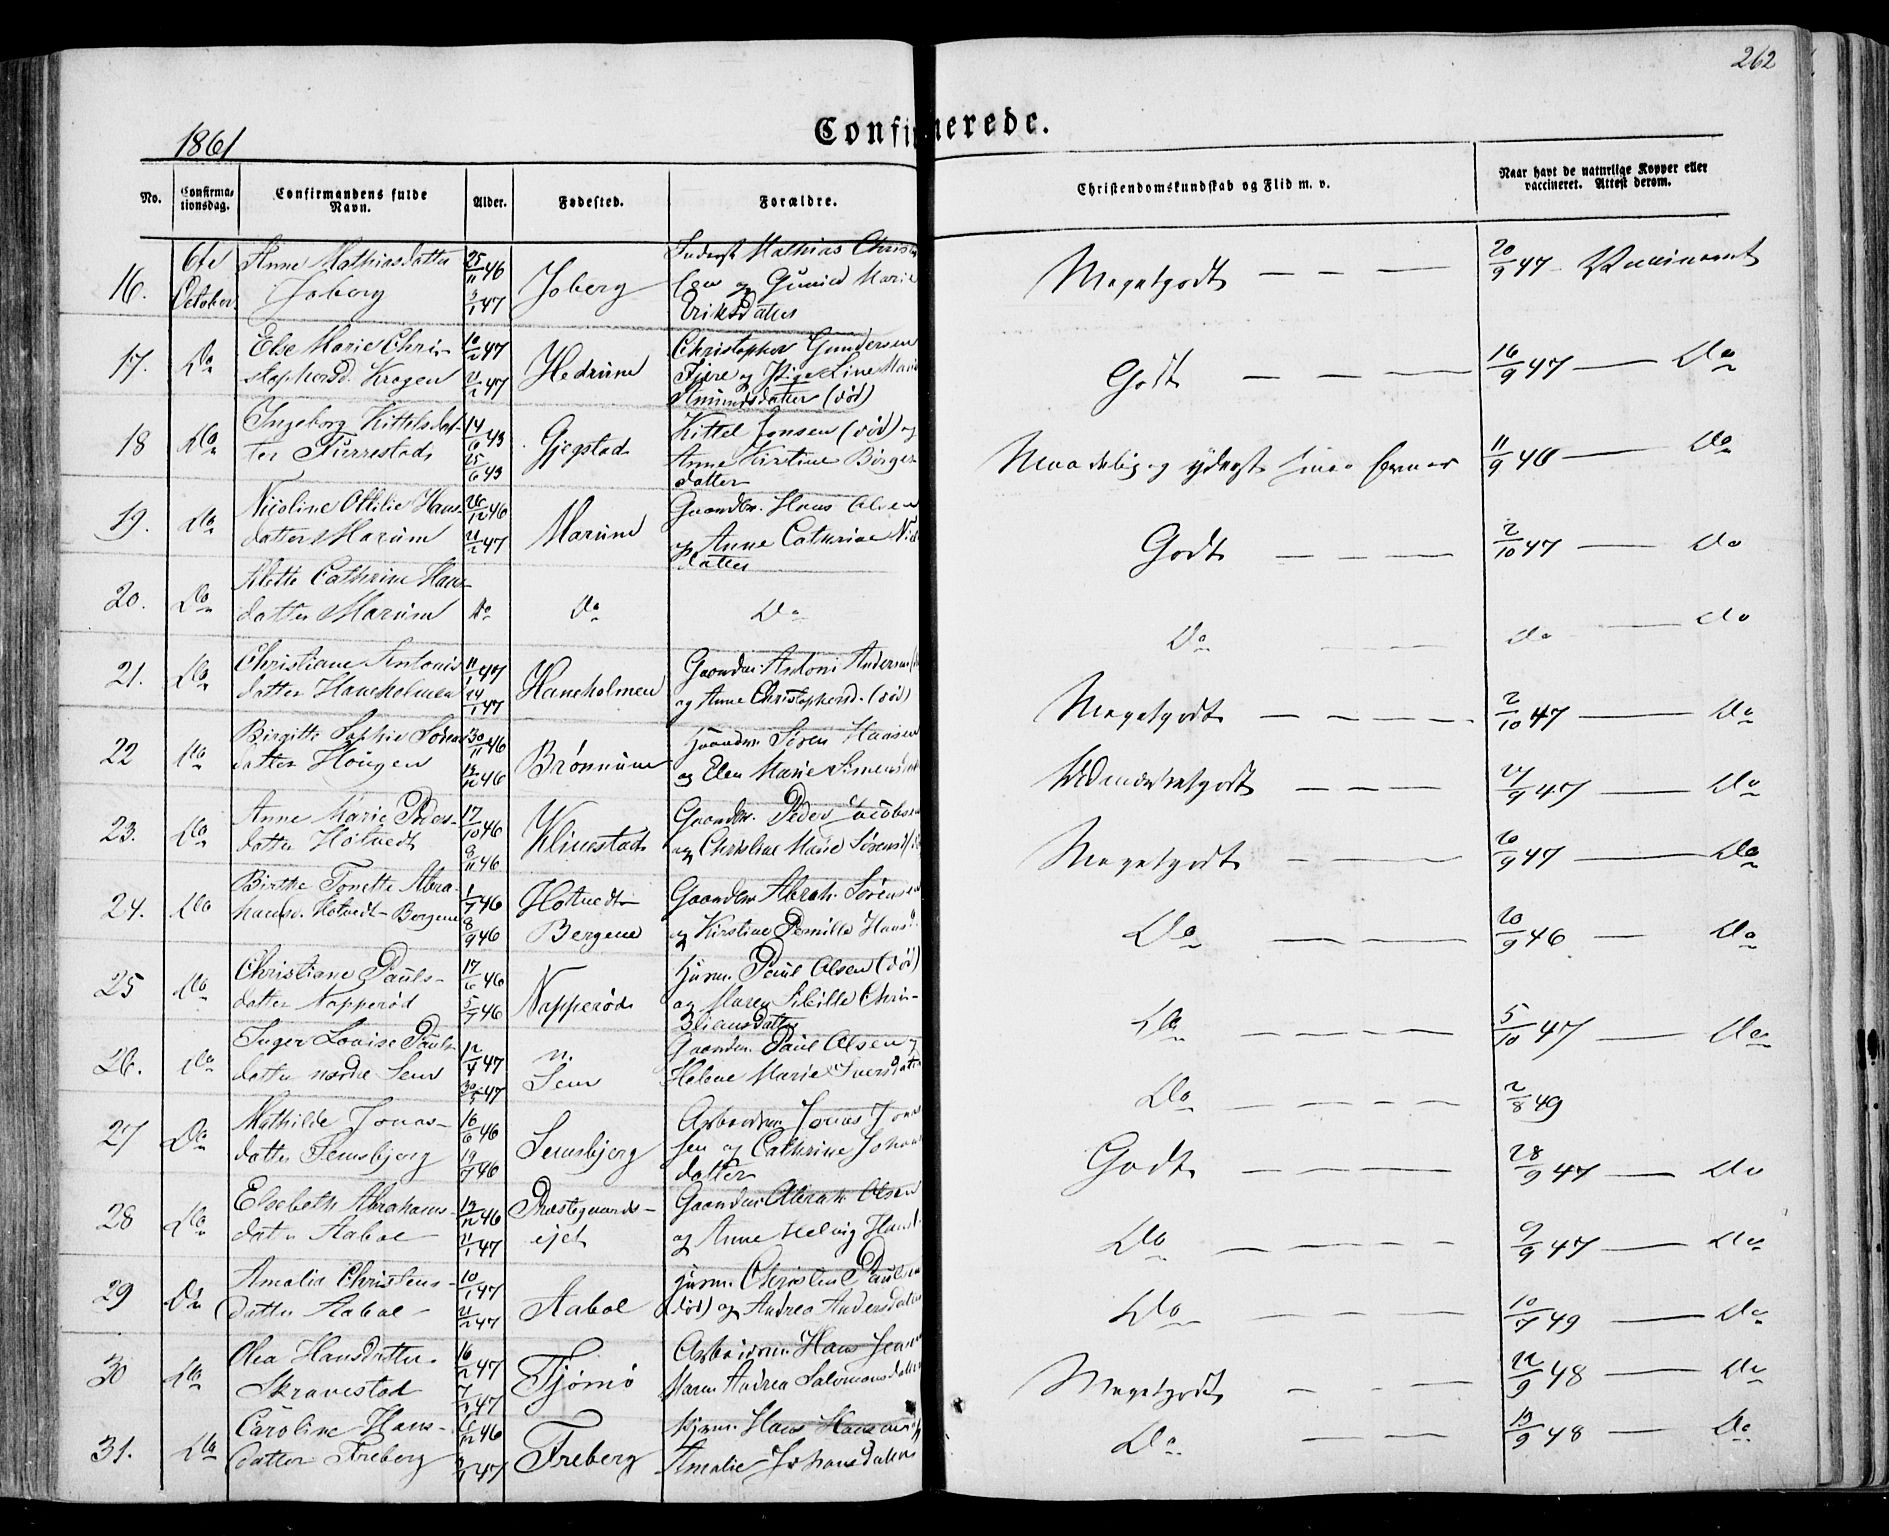 262
1861
Confirmerede.
No. Confirma-tionsdag. Confirmandens fulde Navn. Alder. Fødested. Forældre. Christendomskundskab og Flid m. v. Naar havt de naturlige Kopper eller vaccineret. Attest derom.
16. 6te October Anne Mathiasdatter Joberg 25/11 46 3/1 47 Joberg Mathias Christen-sen og Gunild Marie Eriksdatter Megetgodt — — — 20/9 47 Vaccineret
17. Do Else Marie Chri-stophersd. Krogen 10/1 47 21/2 47 Hedrum Christopher Gundersen Fjære og Pige Line Marie Amundsdatter (død) Godt — — — 16/9 47 — Do
18 Do Ingeborg Kittilsdat-ter Furrestad 14/6 43 25/6 43 Gjegstad Kittel Jensen (død) og Anne Kirstine Børger-datter Maadelig og yderst 11/9 48 — Do
19. Do Nicoline Ottilie Hans-datter Marum 26/12 46 21/2 47 Marum Gaardbr. Hans Olsen og Anne Cathrine datter Godt — — — 2/10 47 — Do
20. Do Alette Cathrine Hans-datter Marum Do Do Do Do — — — Do — Do
21. Do Christiane Antonis-datter Haneholmen 11/1 47 24/1 47 Haneholmen Gaardm. Antoni Andersen og Anne Christophersd. (død) Megetgodt — — — 2/10 47 — Do
22 Do Birgitte Sophie Sørens-datter Hougen 30/11 46 13/12 46 Brønnum Huusm. Søren Hansen og Elen Marie Simens Udmærketgodt — — — 21/9 47 — Do
23. Do Anne Marie Peders-datter Hotvedt 17/10 46 8/11 46 Klinestad Gaardm. Peder Jacobsen og Christine Marie Sørens Megetgodt — — — 6/9 47 — Do
24. Do Birthe Tonette Abra-hamsd. Hotvedt-Bergene 1/7 46 8/9 46 Hotvedt-Bergene Gaardm. Abrah. Sørensen og Kirstine Pernille Hans Do — — — 20/9 46 — Do
25 Do Christiane Pauls-datter Napperød 17/6 46 5/7 46 Napperød Husm. Paul Olsen (død) og Maren Sibille Chri-stiansdatter Do — — — 5/10 47 — Do
26. Do Inger Louise Pauls-datter nordre Sem 12/4 47 30/5 47 n. Sem Gaardm. Paul Olsen og Helene Marie Iversdatter Do — — — 2/8 49
27 Do Mathilde Jonas-datter Semsbjerg 16/6 46 19/7 46 Semsbjerg Arbeidsm. Jonas Jonas-sen og Cathrine Johans-datter Godt — — — 28/9 47 — Do
28 Do Elsebeth Abrahams-datter Aaboe 13/12 46 21/1 47 Præstegaards-ejet Gaardm. Abrah. Olsen og Anne Helvig Hansd. Do — — — 9/9 47 — Do
29 Do Amalia Christens-datter Aaboe 10/1 47 21/2 47 Aaboe Husm. Christen Paulsen (død) og Andrea Andersdatter Do — — — 10/7 49 — Do
30 Do Olea Hansdatter Skravestad 16/2 47 7/3 47 Tjømø Arbeidsm. Hans Jensen Maren Andrea Salomonsdatter Megetgodt — — — 22/9 48 — Do
31. Do Caroline Hans-datter Freberg 6/12 46 3/1 47 Freberg Hans Hansen og Amalie Johansdatter Do — — — 13/9 48 — Do